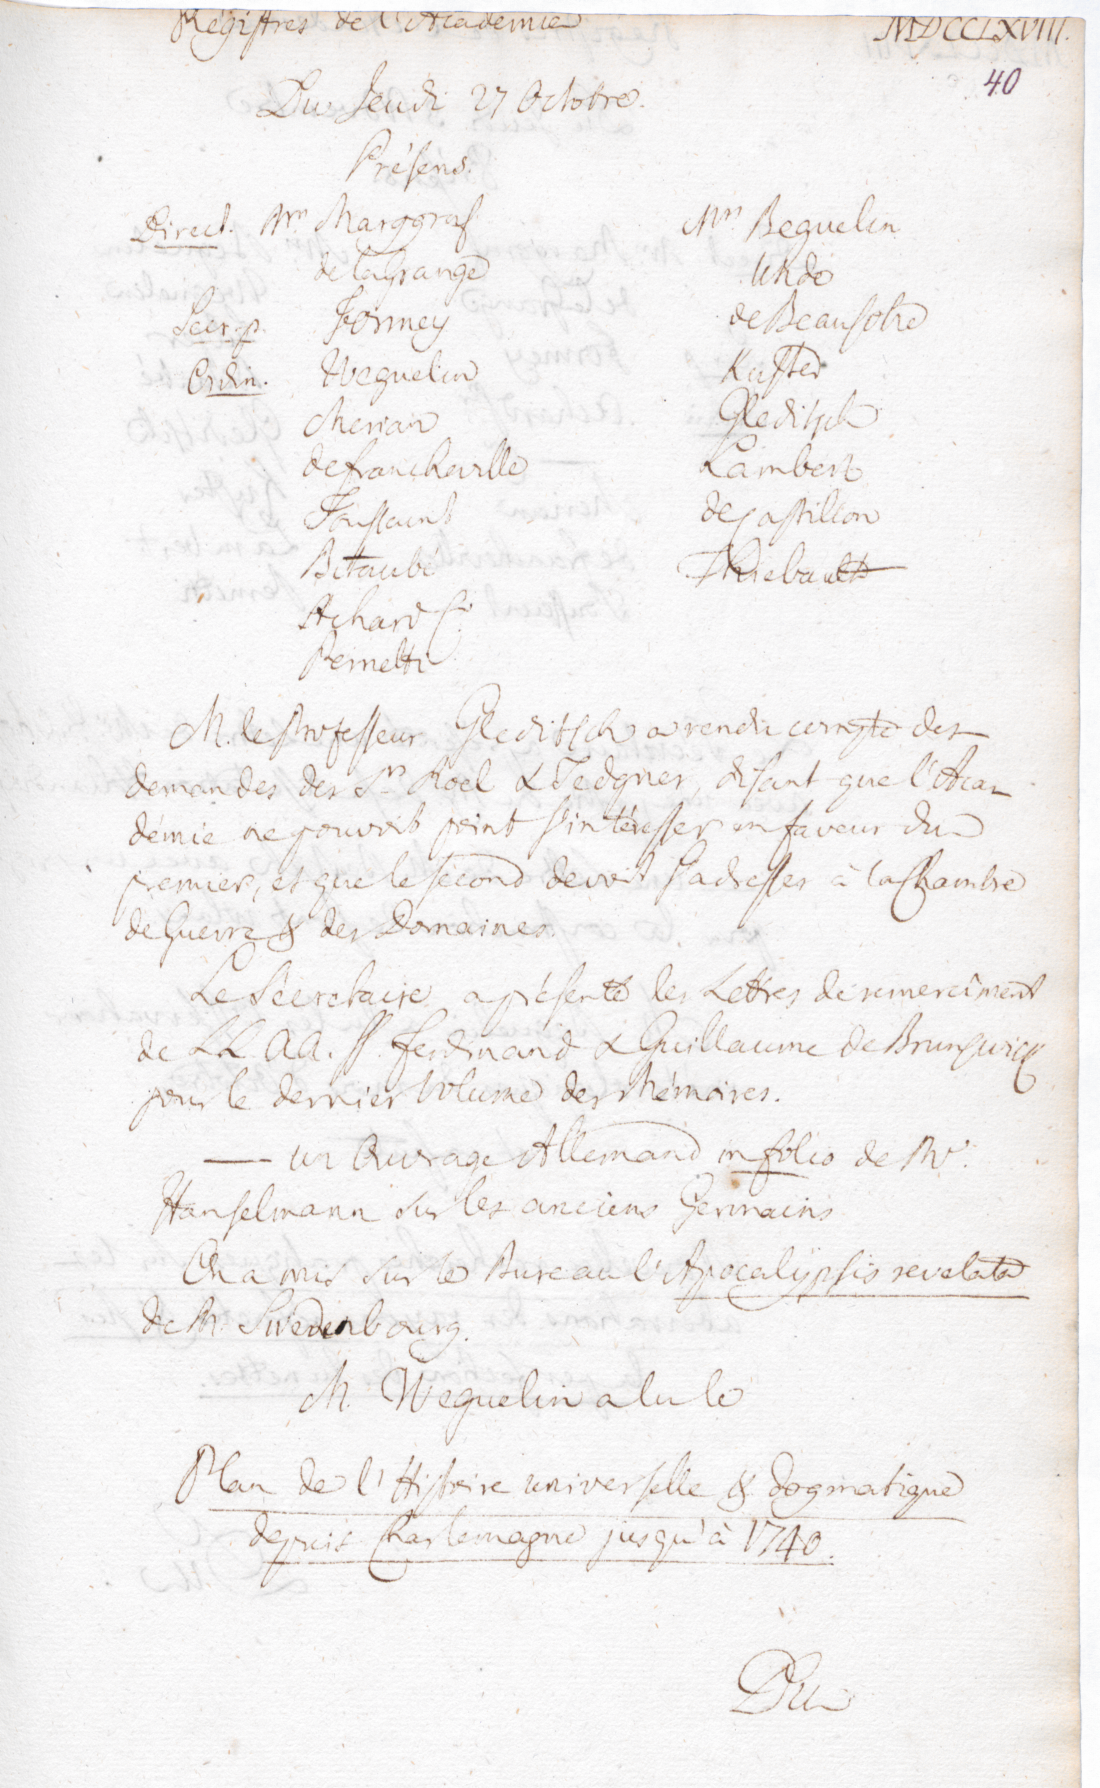 Régistres de l'Académie MDCCLXVIII.
40
Du Jeudi 27 Octobre.
Présens.
Direct. Mrs Marggraf
de la Grange
Secr. p. Formey
Ordin. Weguelin
Merian
de Francheville
Toussaint
Bitaubé
Achard
Pernetti
Mrs Beguelin
Uhde
de Beausobre
Kuster
Gleditsch
Lambert
de Castillon
Thiebault
M. le Professeur Gleditsch a rendu compte des
demandes des Srs Roel & Tedgner, disant que l'Aca-
démie ne pouvoit point s'intéresser en faveur du
premier, et que le second devoit s'adresser à la Chambre
de Guerre & des Domaines.
Le Sécretaire a présenté les Lettres de remercîment
de LL. AA. SS. Ferdinand & Guillaume de Brunsuick
pour le dernier Volume des Mémoires.
— un Ouvrage Allemand in folio de Mr.
Hanselmann sur les anciens Germains
On a mis sur le Bureau l'Apocalÿpsis revelata
de M. Swedenbourg.
M. Weguelin a lu le
Plan de l'Histoire universelle & dogmatique
depuis Charlemagne jusqu'à 1740.
Du